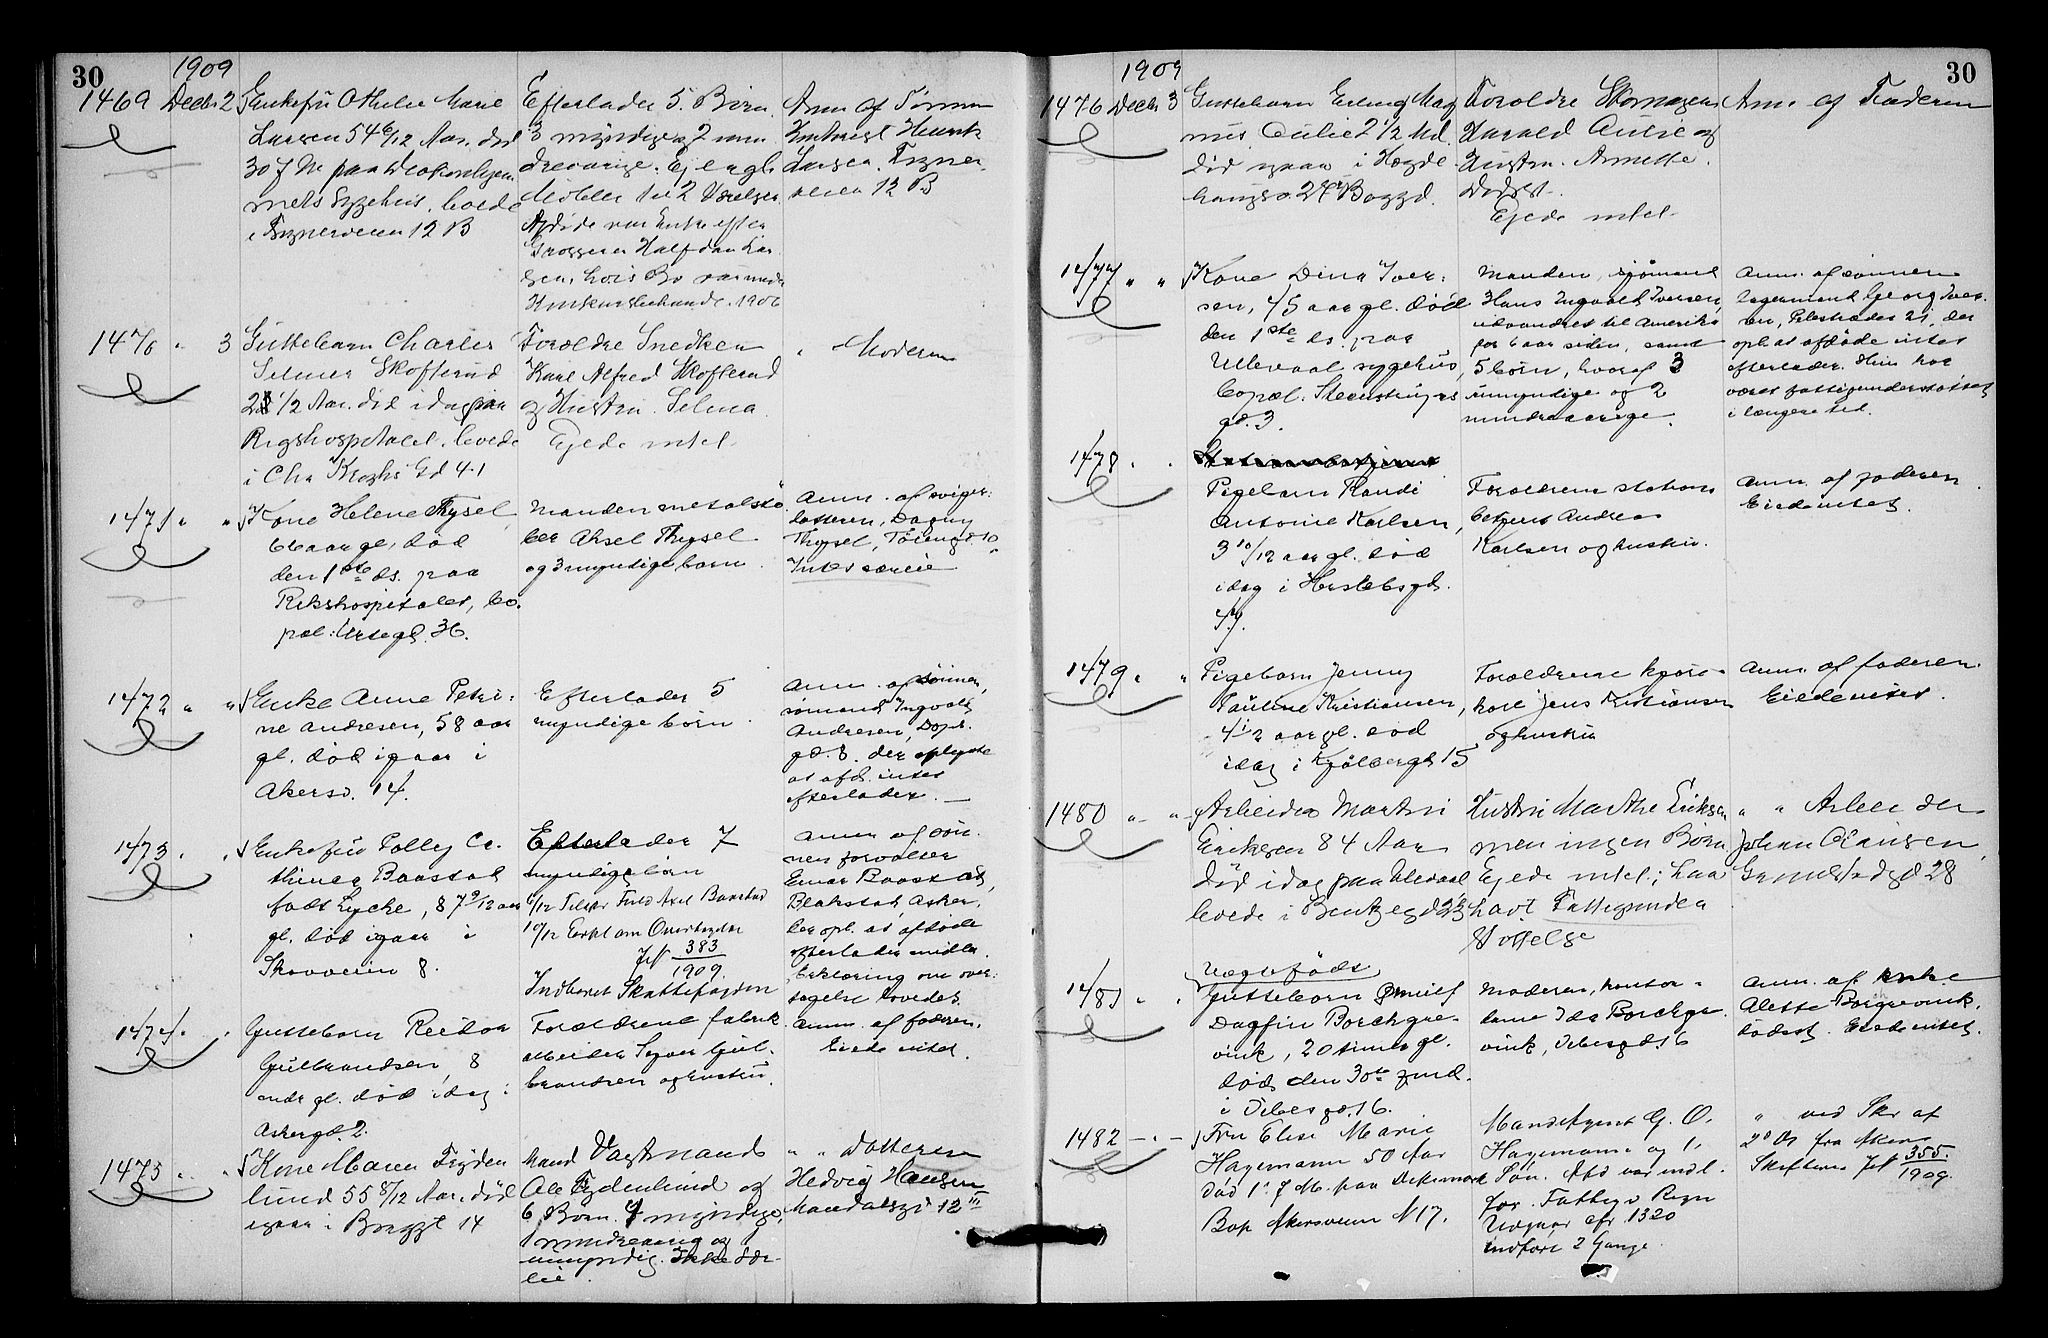 30
1909
1469 Decbr 2 Enkefru Othilie Marie
Larsen 54 6/12 Aar. død
30 f M paa Diakonhjem
mets Sygehus, boede
i Frognerveien 12 B
Efterlader 5 Børn
3 myndige og 2 min
dreaarige. Ej
Møbler til 2 Værelser
Afdøde var Enke efter
Grosserer Halfdan Lar
sen, hvis Bo var under
Konkursbehandl. 1906
Anm af Sønnen
Henrik
Larsen. Frogner
veien 12 B
1470 " 3 Guttebarn Charles
Selmer Skoflerud
2 1/2 Aar. død idag paa
Rigshospitalet. boede
i Chr Kroghs Gd 41
Forældre Snedker
Karl Alfred Skoflerud
og Hustru Selma
Ejede intet
" Moderen
1471 " " Kone Helene Thysel
66 aar gl. død
den 1ste ds. paa
Rikshospitalet, bo.
pæl: Urtegd. 36.
Manden metalstø
ber Aksel Thysel
og 3 myndige barn
Anm. af sviger-
datteren, Dagny
Thysel, Tøiengd 10
Intet særeie
1472 " " Enke Anne Petri-
ne Andresen, 58 aar
gl. død igaar i
Akersv. 14.
Efterlader 5
myndige børn
Anm. af sønnen,
sømand Ingvald
Andresen, Dops
gd. 8. der oplyste
at afd. intet
efterlader. —
1473 " " Enkefru Polly Ca
thinca Baastad
født Lycke, 87 9/12 aar
gl. død igaar i
Skovveien 8.
Efterlader 7
myndige børn
Axel Baastad
10/12 Erkl om Overtagelse
J№ 383/1909.
Indberet Skattefogden
Anm af søn-
nen forvalter
Einar Baastad,
Blakstad, Asker,
der opl. at afdøde
efterlader midler.
Erklæring om over-
tagelse lovedes.
1474 " " Guttebarn Reidar
Gulbrandsen, 8
mdr gl. død idag i
Askergd. 2.
Forældrene fabrik
arbeider Syver Gul-
brandsen og hustru.
Anm. af faderen.
Eiede intet.
1475 " " Kone Maren Fryden
lund 55 8/12 Aar. død
igaar i Byggt 14
Mand Vagtmand
Ole Frydenlund og
6 Børn. 4 myndige,
1 mindreaarig og 1
umyndig. Ikke Sær-
eie.
" " Datteren
Hedvig Hansen
Mandalsgd 12 III
30
1909
1476 Decbr 3 Guttebarn Erling Mag
nus Aulie 2 1/2 Md.
død igaar i Hegde
haugsv. 24 Baggd.
Forældre
Harald Aulie og
Hustru. Annette
Dødfst.
Ejede intet
Anm af Faderen
1477 " " Kone Dina Iver-
sen, 45 aar gl. død
den 1ste ds. paa
Ullevaal sygehus,
bopæl: Steenstrups
gd. 3.
Manden, sjømand
Hans Ingvald Iversen,
udvandret til Amerika
for 6 aar siden, samt
5 børn, hvoraf 3
umyndige og 2
mindreaarige.
Anm. af sønnen
Georg Iver-
sen, Pilestrædet 21, der
opl. at afdøde intet
efterlader. Hun har
været fattigunderstøttet
i længere tid.
1478 " "
Pigebarn Randi
Antonie Karlsen,
3 10/12 aar gl. død
idag i Herslebsgd.
Forældrene stations
betjent Andreas
Karlsen og hustru.
Anm. af faderen
Eiede intet.
1479 " " Pigebarn Jenny
Pauline Kristiansen,
4 1/2 aar gl. død
idag i Kjølberggd 15
Forældrene kjøre-
karl Jens Kristiansen
og hustru
Anm. af faderen.
Eiede intet.
1480 " " Arbeider Martin
Eriksen 84 Aar
død idag paa Ulevaal
boede i Bentzegd 23
Hustru Marthe Eriksen
men ingen Børn
Ejede intet; har
havt Fattigunder
støttelse
" " Arbeider
Johan Hansen
28
1481 " "
Uægtefødt
Guttebarn
Dagfin Borchgre-
vink, 20 timer gl.
død den 30te f. md.
i Vibes gd. 16.
Moderen, kontor-
dame Ida Borchgre
vink, Vibesgd. 16
Anm. af enke
Alette Borgrevink,
Eiede intet.
1482 — " — Fru Elise Marie
Hagemann 50 Aar
død 1' f M. paa Dikemark
Bop Akersveien № 17.
Mand Agent G. O.
Hagemann og 1
Søn. Afd var indl.
for. Fattigv Regn
Udgaar cfr 1320
indført 2 Gange.
" ved Skr af
2' ds fra Akers
Skifteret J№ 355/1909.